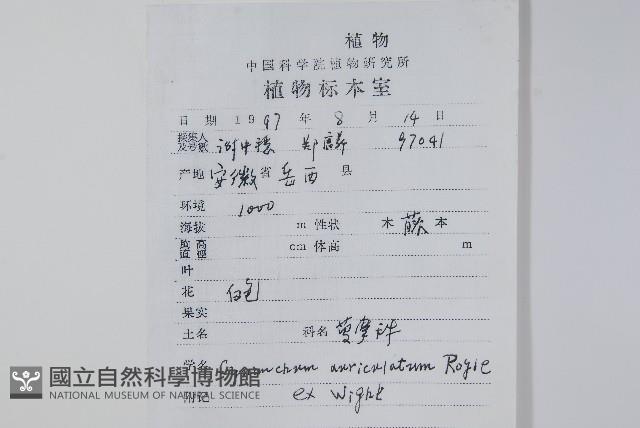 植物
中国科学院植物研究所
植物标本室
日期 1997 年 8 月 14 日
采集人及号数 97041
产地 安徽省 岳西 县
环境
海拔 1000 m 性状 木 藤 本
胸高直径 cm 体高 m
叶
花 白色
果实
土名 科名 萝摩科
学名 Cynanchum auriculatum Royle
附记 ex Wight
國立自然科學博物館
NATIONAL MUSEUM OF NATURAL SCIENCE